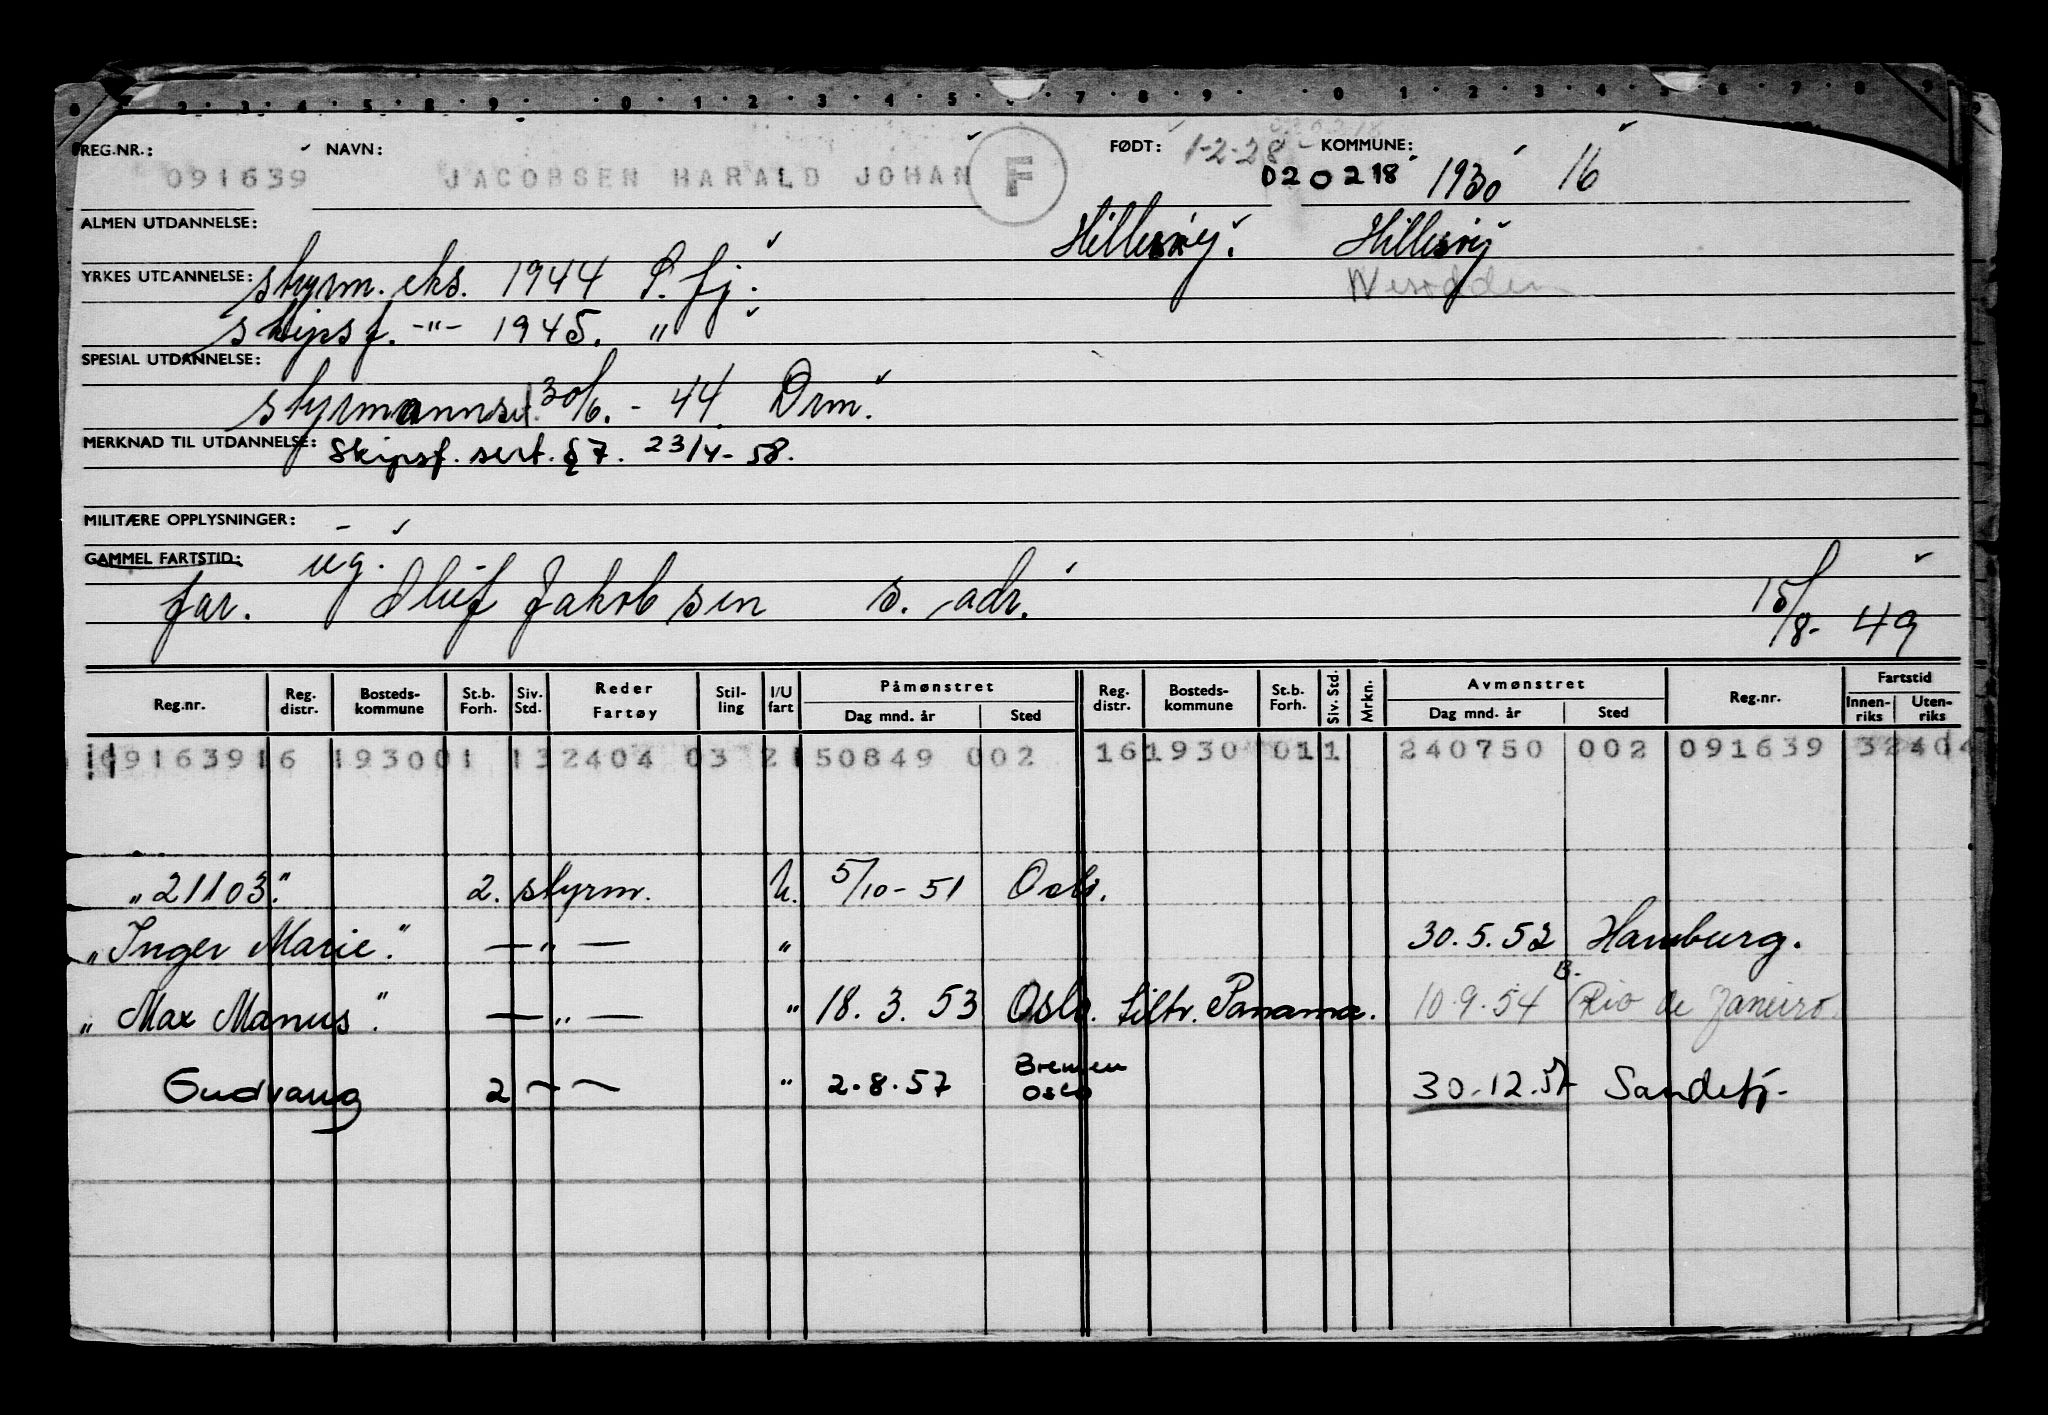 REG.NR.: NAVN: FØDT: 1-2-28 KOMMUNE:
091639 JACOBSEN HARALD JOHAN F 020218 1930 16
ALMEN UTDANNELSE: Hillesøy. Hillesøy
YRKES UTDANNELSE: styrm. eks. 1944 S. fj. Nesodden
skipsf. -"- 1945. "
SPESIAL UTDANNELSE:
30/6. - 44. Drm.
MERKNAD TIL UTDANNELSE: Skipsf. sert. § 7. 23/4-58.
MILITÆRE OPPLYSNINGER: -
GAMMEL FARTSTID: ug.
far. Oluf Jakobsen s. adr. 15/8-49
Reg.nr. Reg. distr. Bosteds-kommune St.b. Forh. Siv. Std. Reder Fartøy Stil-ling I/U fart Påmønstret Dag mnd. år Sted Reg. distr. Bosteds-kommune St.b. Forh. Siv. Std. Mrkn. Avmønstret Dag mnd. år Sted Reg.nr. Fartstid Innen-riks Uten-riks
09163916 193001 132404 03 2150849 002 161930 011 240750 002 091639 32404
"21103." 2. styrm. U. 5/10-51 Oslo.
"Inger Marie." — " — " 30.5.52 Hamburg.
"Max Manus". — " — " 18. 3. 53 Oslo. tiltr. Panama. 10.9.54 B. Rio de Janeiro.
Gudvang 2 — — " 2.8.57 Bremen Oslo 30.12.57 Sandefj.